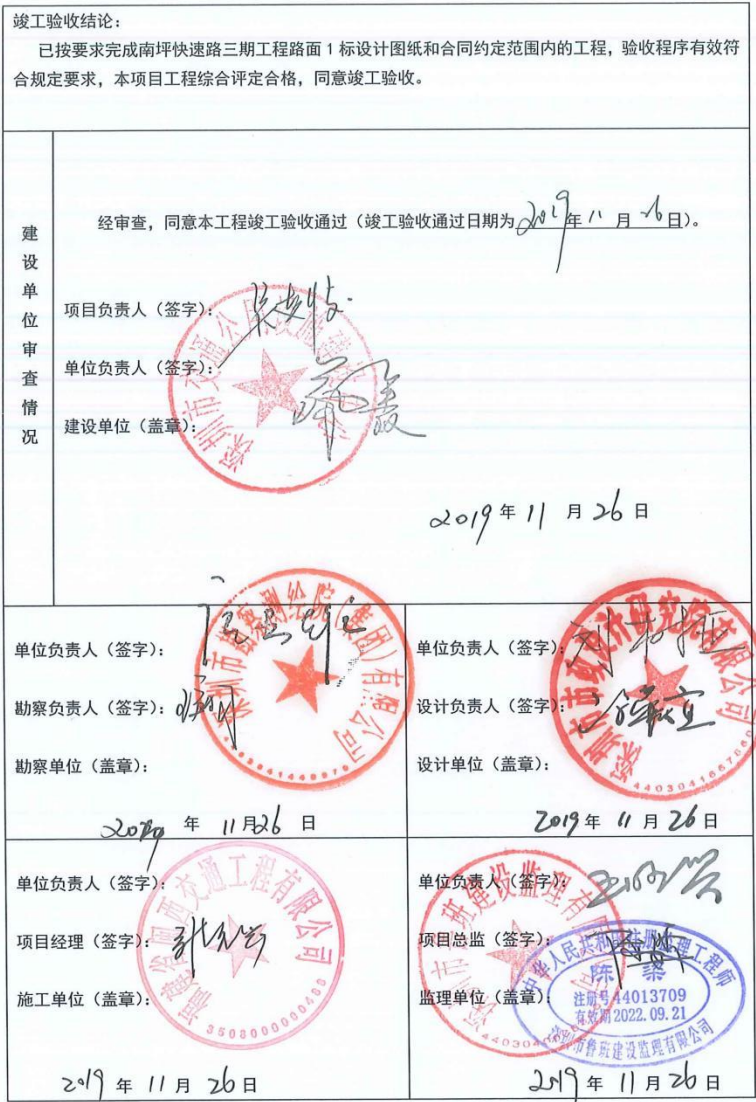 竣工验收结论：
已按要求完成南坪快速路三期工程路面1标设计图纸和合同约定范围内的工程，验收程序有效符
合规定要求，本项目工程综合评定合格，同意竣工验收。
建设单位审查情况
经审查，同意本工程竣工验收通过（竣工验收通过日期为2019年11月26日）。
项目负责人（签字）：
单位负责人（签字）：
建设单位（盖章）：
2019年11月26日
单位负责人（签字）：
勘察负责人（签字）：
勘察单位（盖章）：
深圳市勘察测绘院（集团）有限公司
2019年11月26日
单位负责人（签字）：
设计负责人（签字）：
设计单位（盖章）：
深圳市市政设计研究院有限公司
2019年11月26日
单位负责人（签字）：
项目经理（签字）：
施工单位（盖章）：
福建省闽西交通工程有限公司
2019年11月26日
单位负责人（签字）：
项目总监（签字）：
监理单位（盖章）：
深圳市鲁班建设监理有限公司
中华人民共和国注册监理工程师
注册号44013709
有效期2022.09.21
深圳市鲁班建设监理有限公司
2019年11月26日